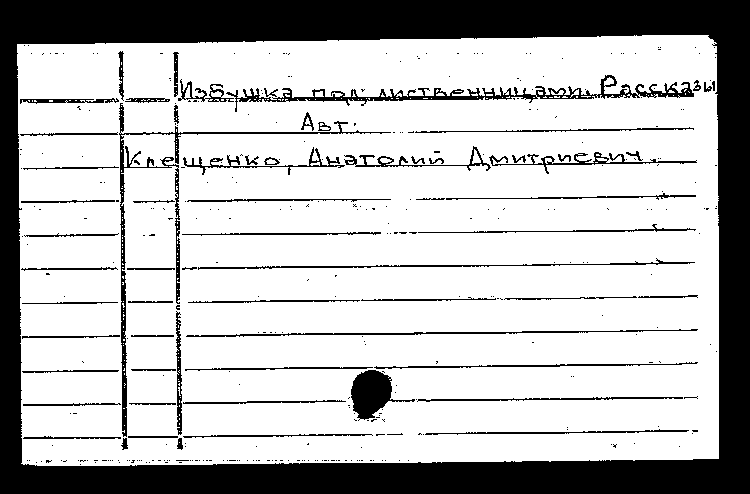 Избушка под лиственницами. Рассказы
Авт:
Клещенко, Анатолий Дмитриевич.